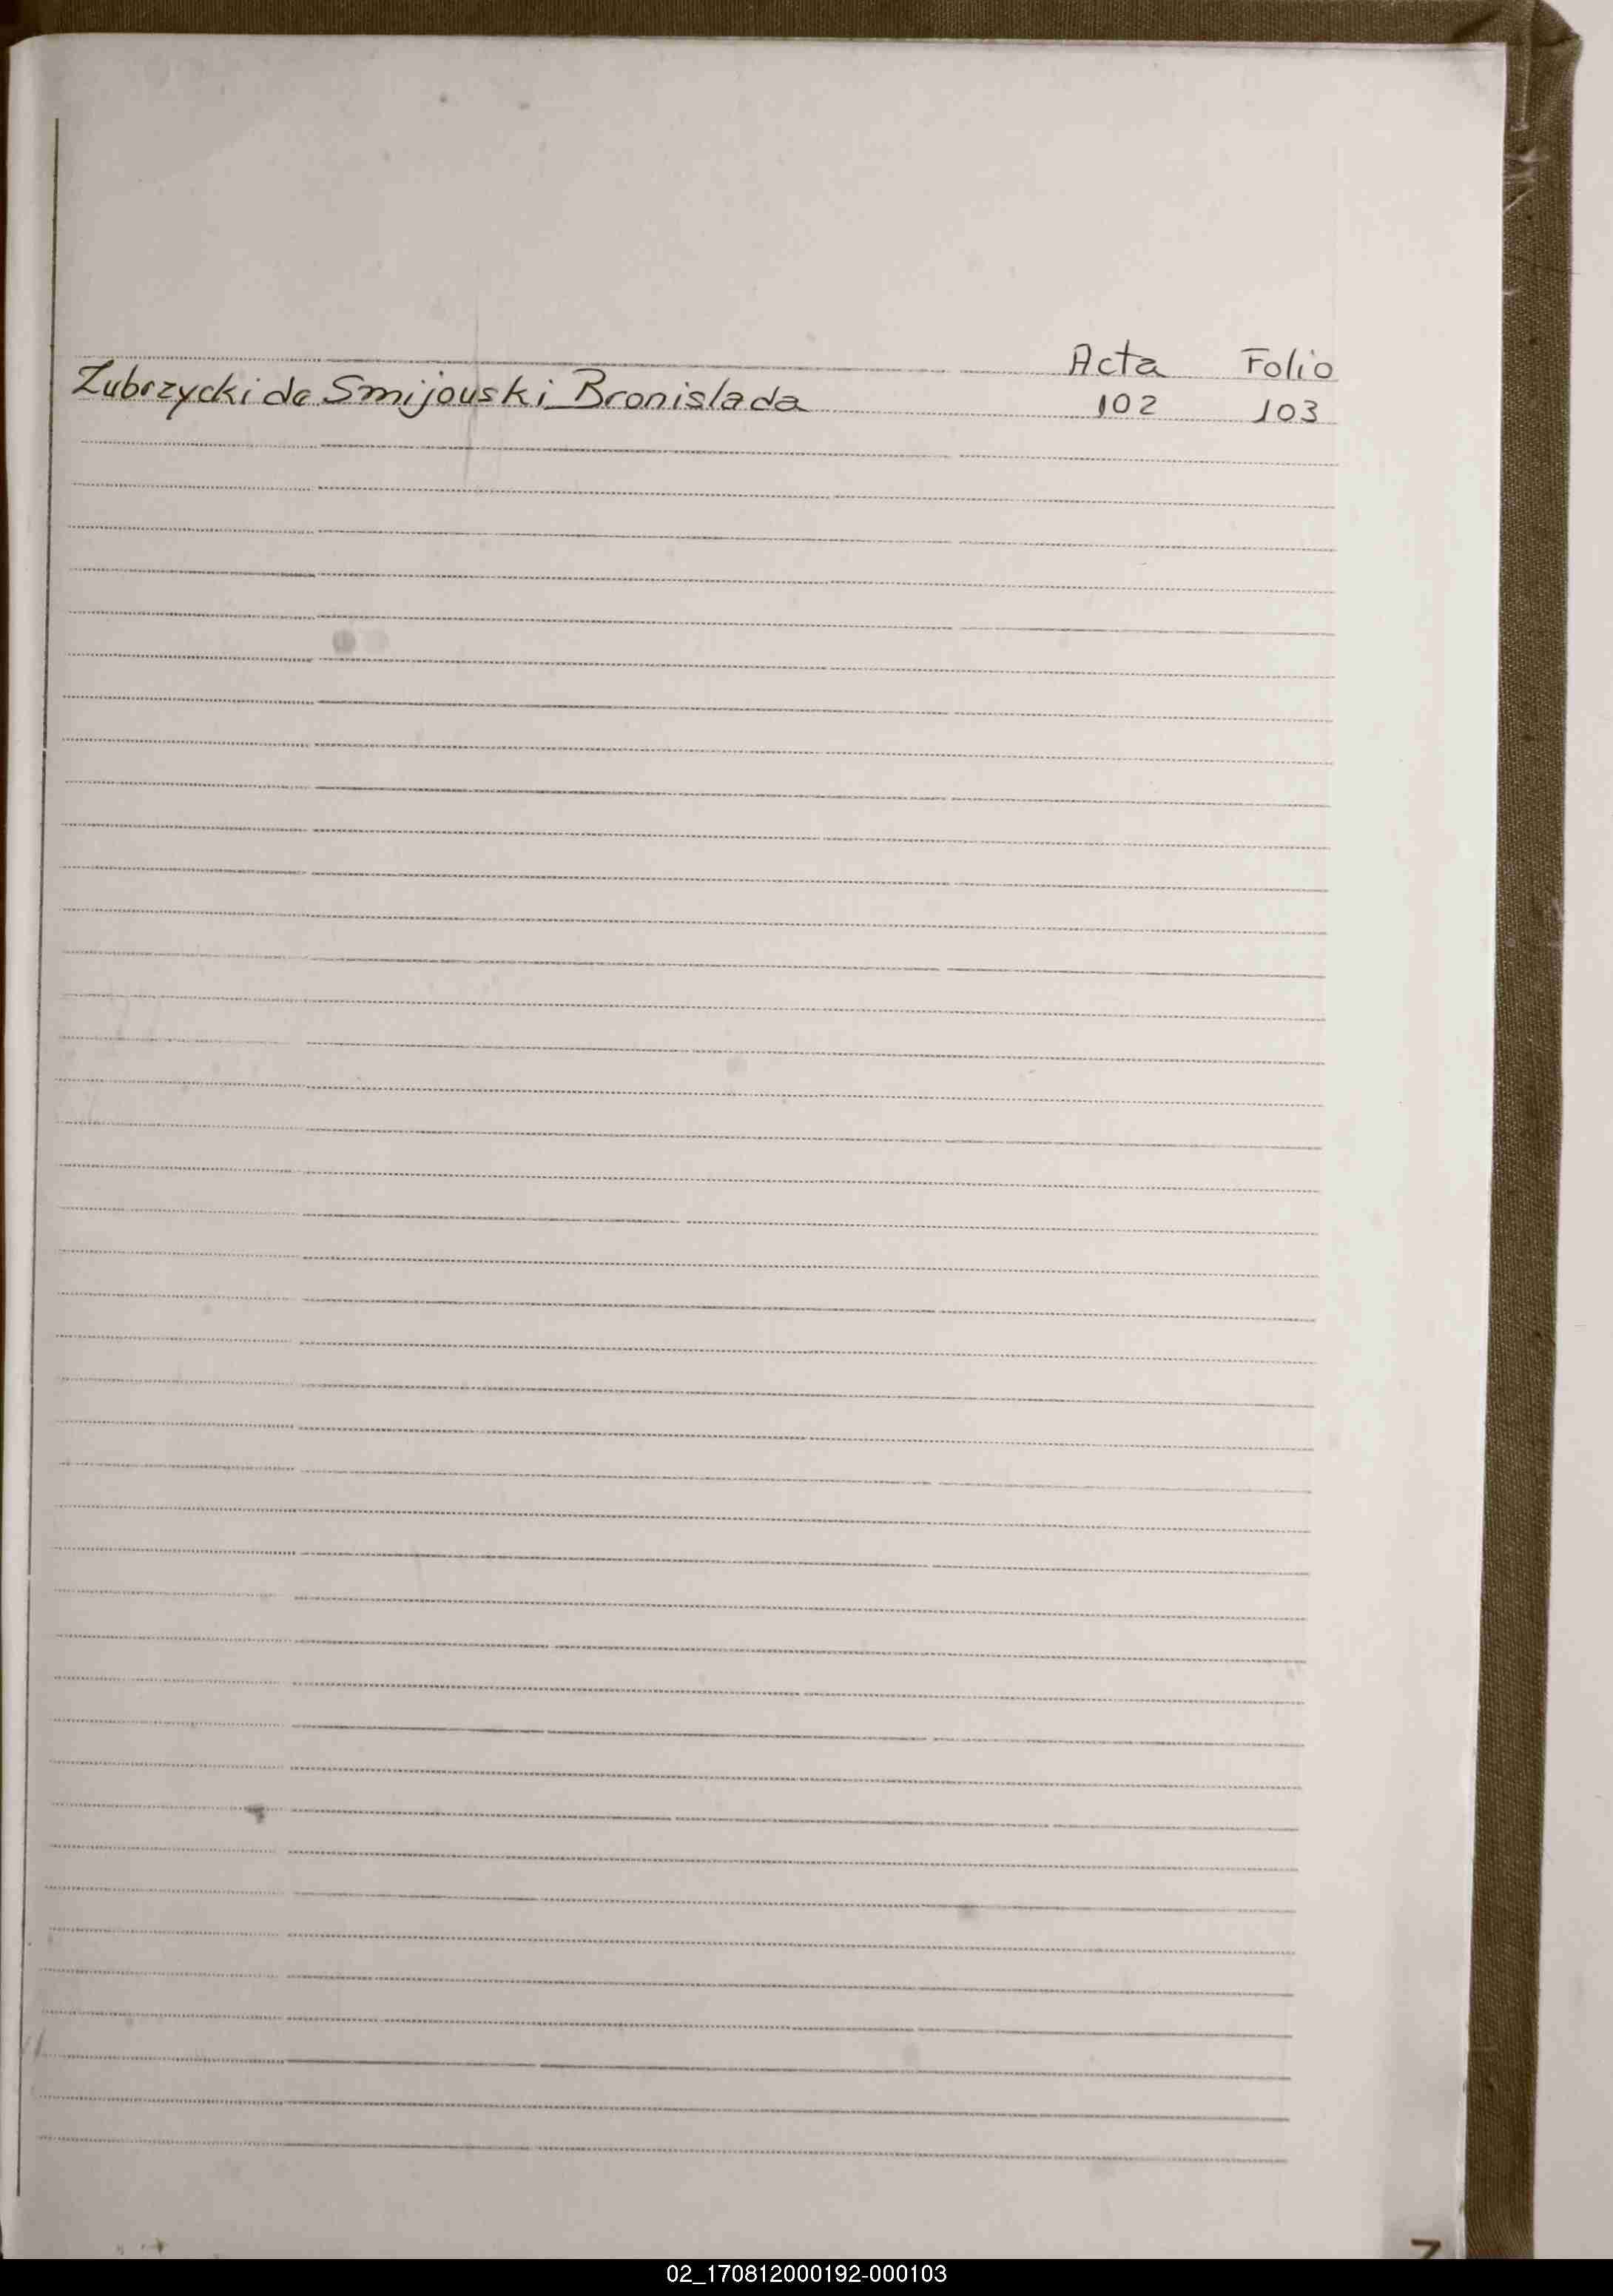 Acta Folio
Zubrzycki de Smijouski Bronislada 102 103
Z
02_170812000192-000103